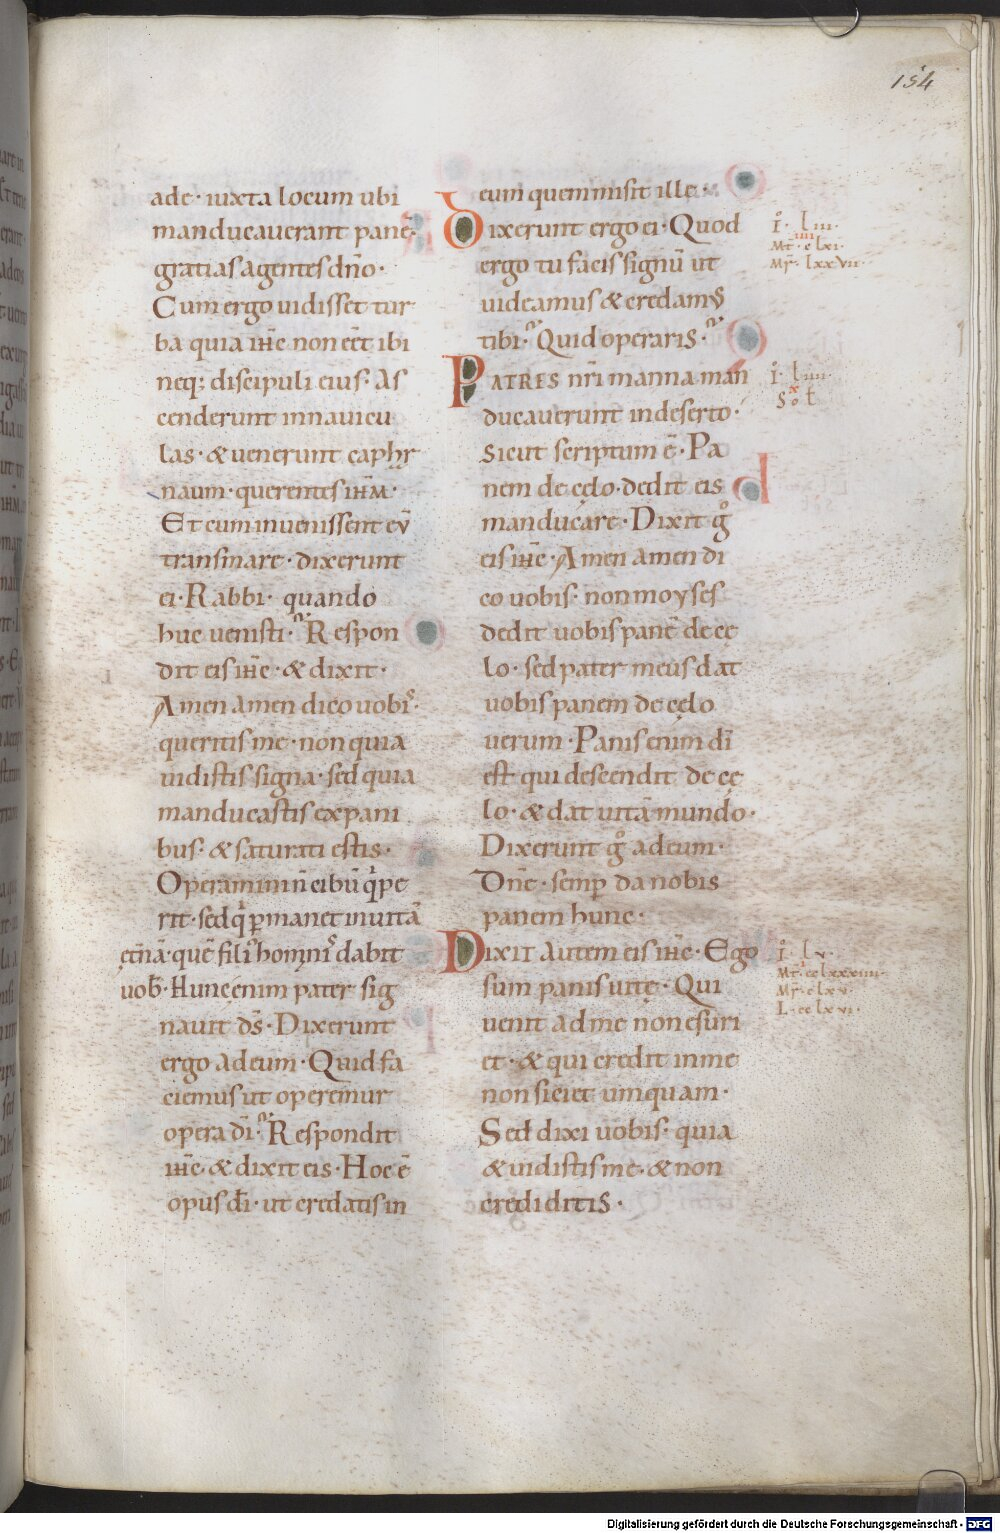 154
ade· iuxta locum ubi
manducauerant pane·
gratias agentes dño·
Cum ergo uidisset tur
ba quia ihc̄ non eēt ibi
neq; discipuli eius· As
cenderunt in nauicu
las· & uenerunt caphr
naum· querentes ihm̄·
Et cum inuenissent eū
trans mare· dixerunt
ei· Rabbi· quando
huc uenisti· Respon
dit eis ihc̄· & dixit·
Amen amen dico uobis·
queritis me· non quia
uidistis signa· sed quia
manducastis ex pani
bus· & saturati estis·
Operamini n̄ cibū q̇ pe
rit· sed q̇ ꝑmanet in uitā
ęt̄nā· quē fili' hominis dabit
uob̄· Hunc enim pater sig
nauit dš· Dixerunt
ergo ad eum· Quid fa
ciemus ut operemur
opera dī· Respondit
ihc̄· & dixit eis· Hoc ē
opus dī· ut credatis in
eum quem misit ille·
Dixerunt ergo ei· Quod
ergo tu facis signū ut
uideamus & credamus
tibi· Quid operaris·
PATRES nr̄i manna man
ducauerunt in deserto·
Sicut scriptum ē· Pa
nem de cęlo· dedit eis
manducare· Dixit g̊
eis ihc̄· Amen amen di
co uobis· non moyses
dedit uobis panē de cę
lo· sed pater meus dat
uobis panem de cęlo
uerum· Panis enim dī
est qui descendit de cę
lo· & dat uitā mundo·
Dixerunt g̊ ad eum·
Dn̄e· semꝑ da nobis
panem hunc·
DIXIT autem eis ihc̄· Ego
sum panis uitę· Qui
uenit ad me non esuri
et· & qui credit in me
non siciet umquam·
Sed dixi uobis· quia
& uidistis me· & non
credidistis·
I̊· liii·
Mt̄· clxi·
Mr̄· lxxvii·
I̊· liiii·
I̊· lv·
Mt̄· cclxxxiiii·
Mr̄· clxv·
L· cclxvi·
Digitalisierung gefördert durch die Deutsche Forschungsgemeinschaft - DFG